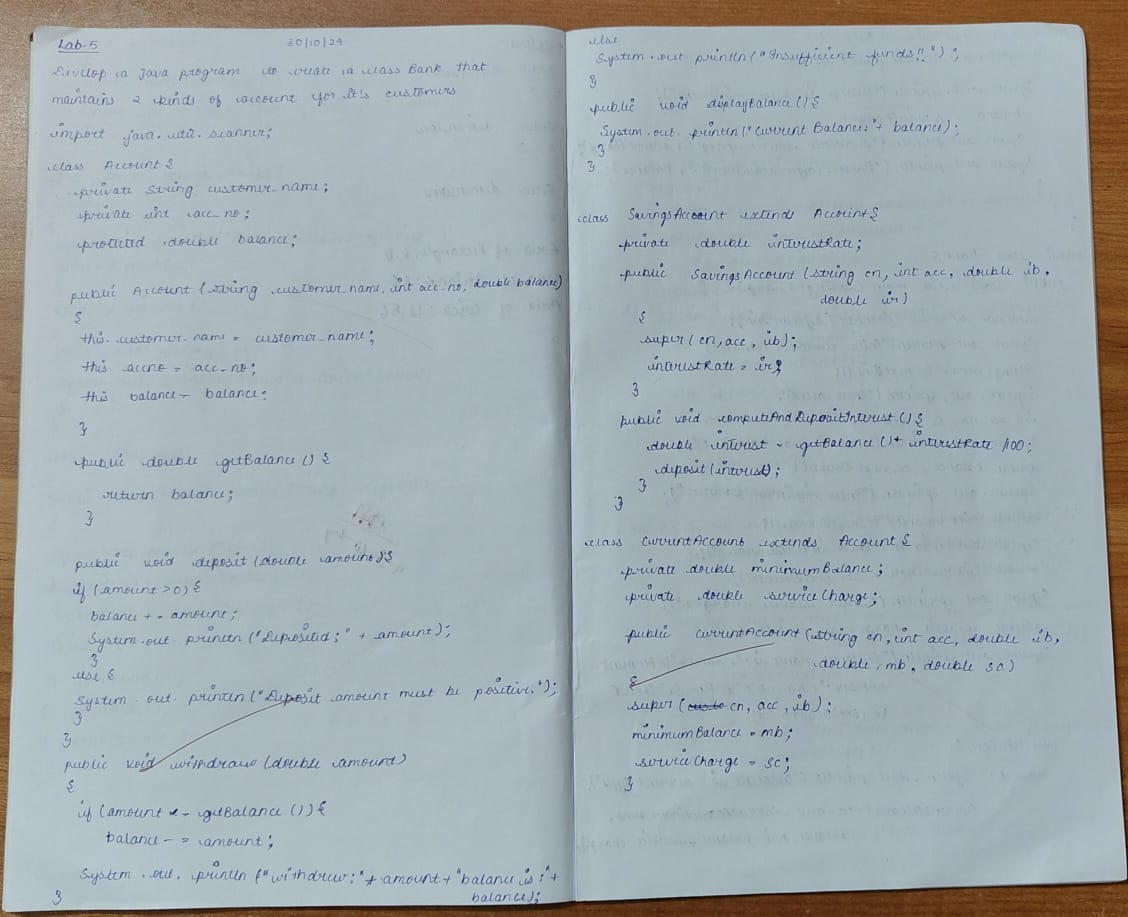 Lab-5
30/10/24
Develop a Java program to create a class Bank that
maintains 2 kinds of account for it's customers
import java.util.scanner;
class Account {
private String customer_name;
private int acc_no;
protected double balance;
public Account (string customer_name, int acc_no, double balance)
{
this.customer_name = customer_name;
this accno = acc_no;
this balance = balance;
}
public double getBalance () {
return balance;
}
public void deposit (double amount) {
if (amount > 0) {
balance += amount;
System.out println ("Deposited;" + amount);
}
else {
System.out. println ("Deposit amount must be positive.");
}
}
public void withdraw (double amount)
{
if (amount <= getBalance ()) {
balance -= amount;
System.out. println ("withdraw:" + amount + "balance is:" +
balance);
}
else
System.out println ("Insufficient funds!!");
}
public void displayBalance () {
System.out. println ("Current Balance:" + balance);
}
}
class SavingsAccount extends Account {
private double interestRate;
public SavingsAccount (string cn, int acc, double ib,
double ir)
{
super (cn, acc, ib);
interestRate = ir;
}
public void computeAndDepositInterest () {
double interest = getBalance () * interestRate /100;
deposit (interest);
}
}
class CurrentAccount extends Account {
private double minimumBalance;
private double serviceCharge;
public currentAccount (string cn, int acc, double ib,
double, mb, double sc)
{
super (cn, acc, ib);
minimumBalance = mb;
serviceCharge = sc;
}